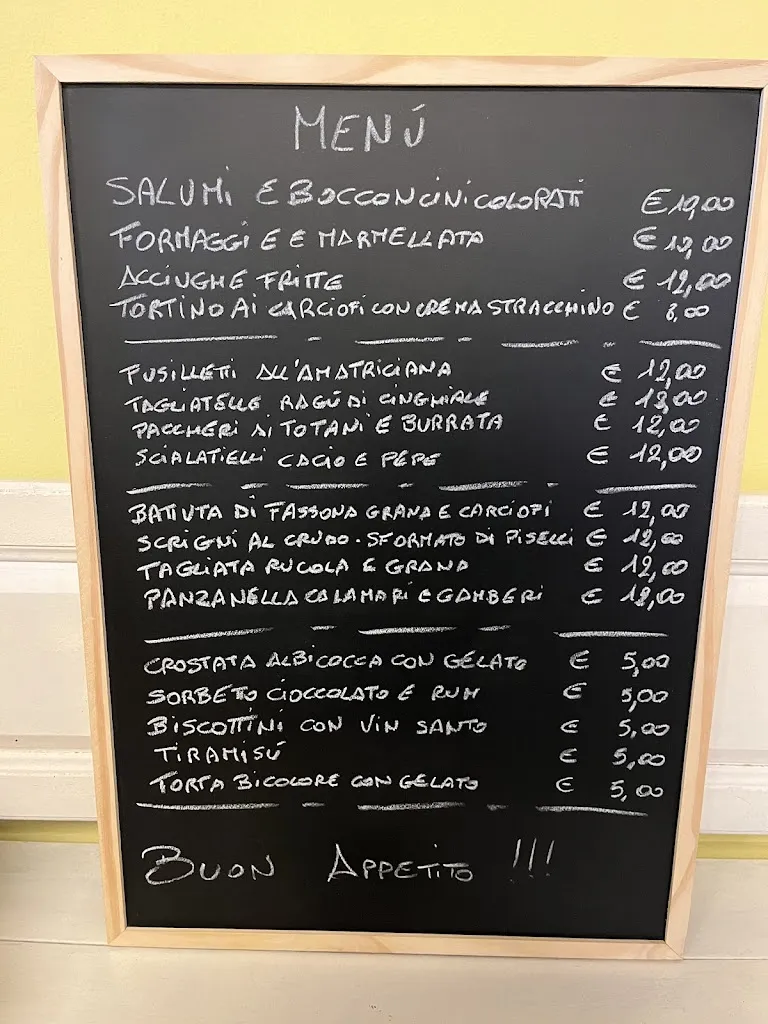 MENÚ
SALUMI E BOCCONCINI COLORATI € 10,00
FORMAGGI E E MARMELLATA € 10,00
ACCIUGHE FRITTE € 12,00
TORTINO AI CARCIOFI CON CREMA STRACCHINO € 8,00
FUSILLETI ALL'AMATRICIANA € 12,00
TAGLIATELLE RAGÚ DI CINGHIALE € 12,00
PACCHERI AI TOTANI E BURRATA € 12,00
SCIALATIELLI CACIO E PEPE € 12,00
BATTUTA DI FASSONA GRANA E CARCIOFI € 12,00
SCRIGNI AL CRUDO - SFORMATO DI PISELLI € 12,00
TAGLIATA RUCOLA E GRANA € 12,00
PANZANELLA CALAMARI E GAMBERI € 12,00
CROSTATA ALBICOCCA CON GELATO € 5,00
SORBETTO CIOCCOLATO E RUM € 5,00
BISCOTTINI CON VIN SANTO € 5,00
TIRAMISÚ € 5,00
TORTA BICOLORE CON GELATO € 5,00
BUON APPETITO !!!